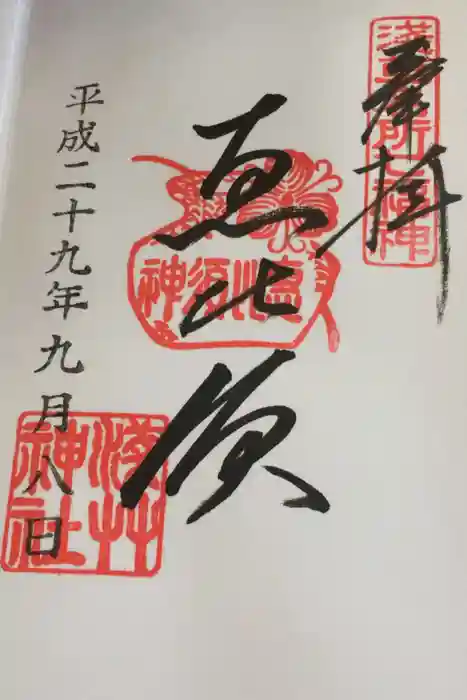 奉拝
浅草名所七福神
恵比須
恵比須神
平成二十九年九月八日
浅草神社